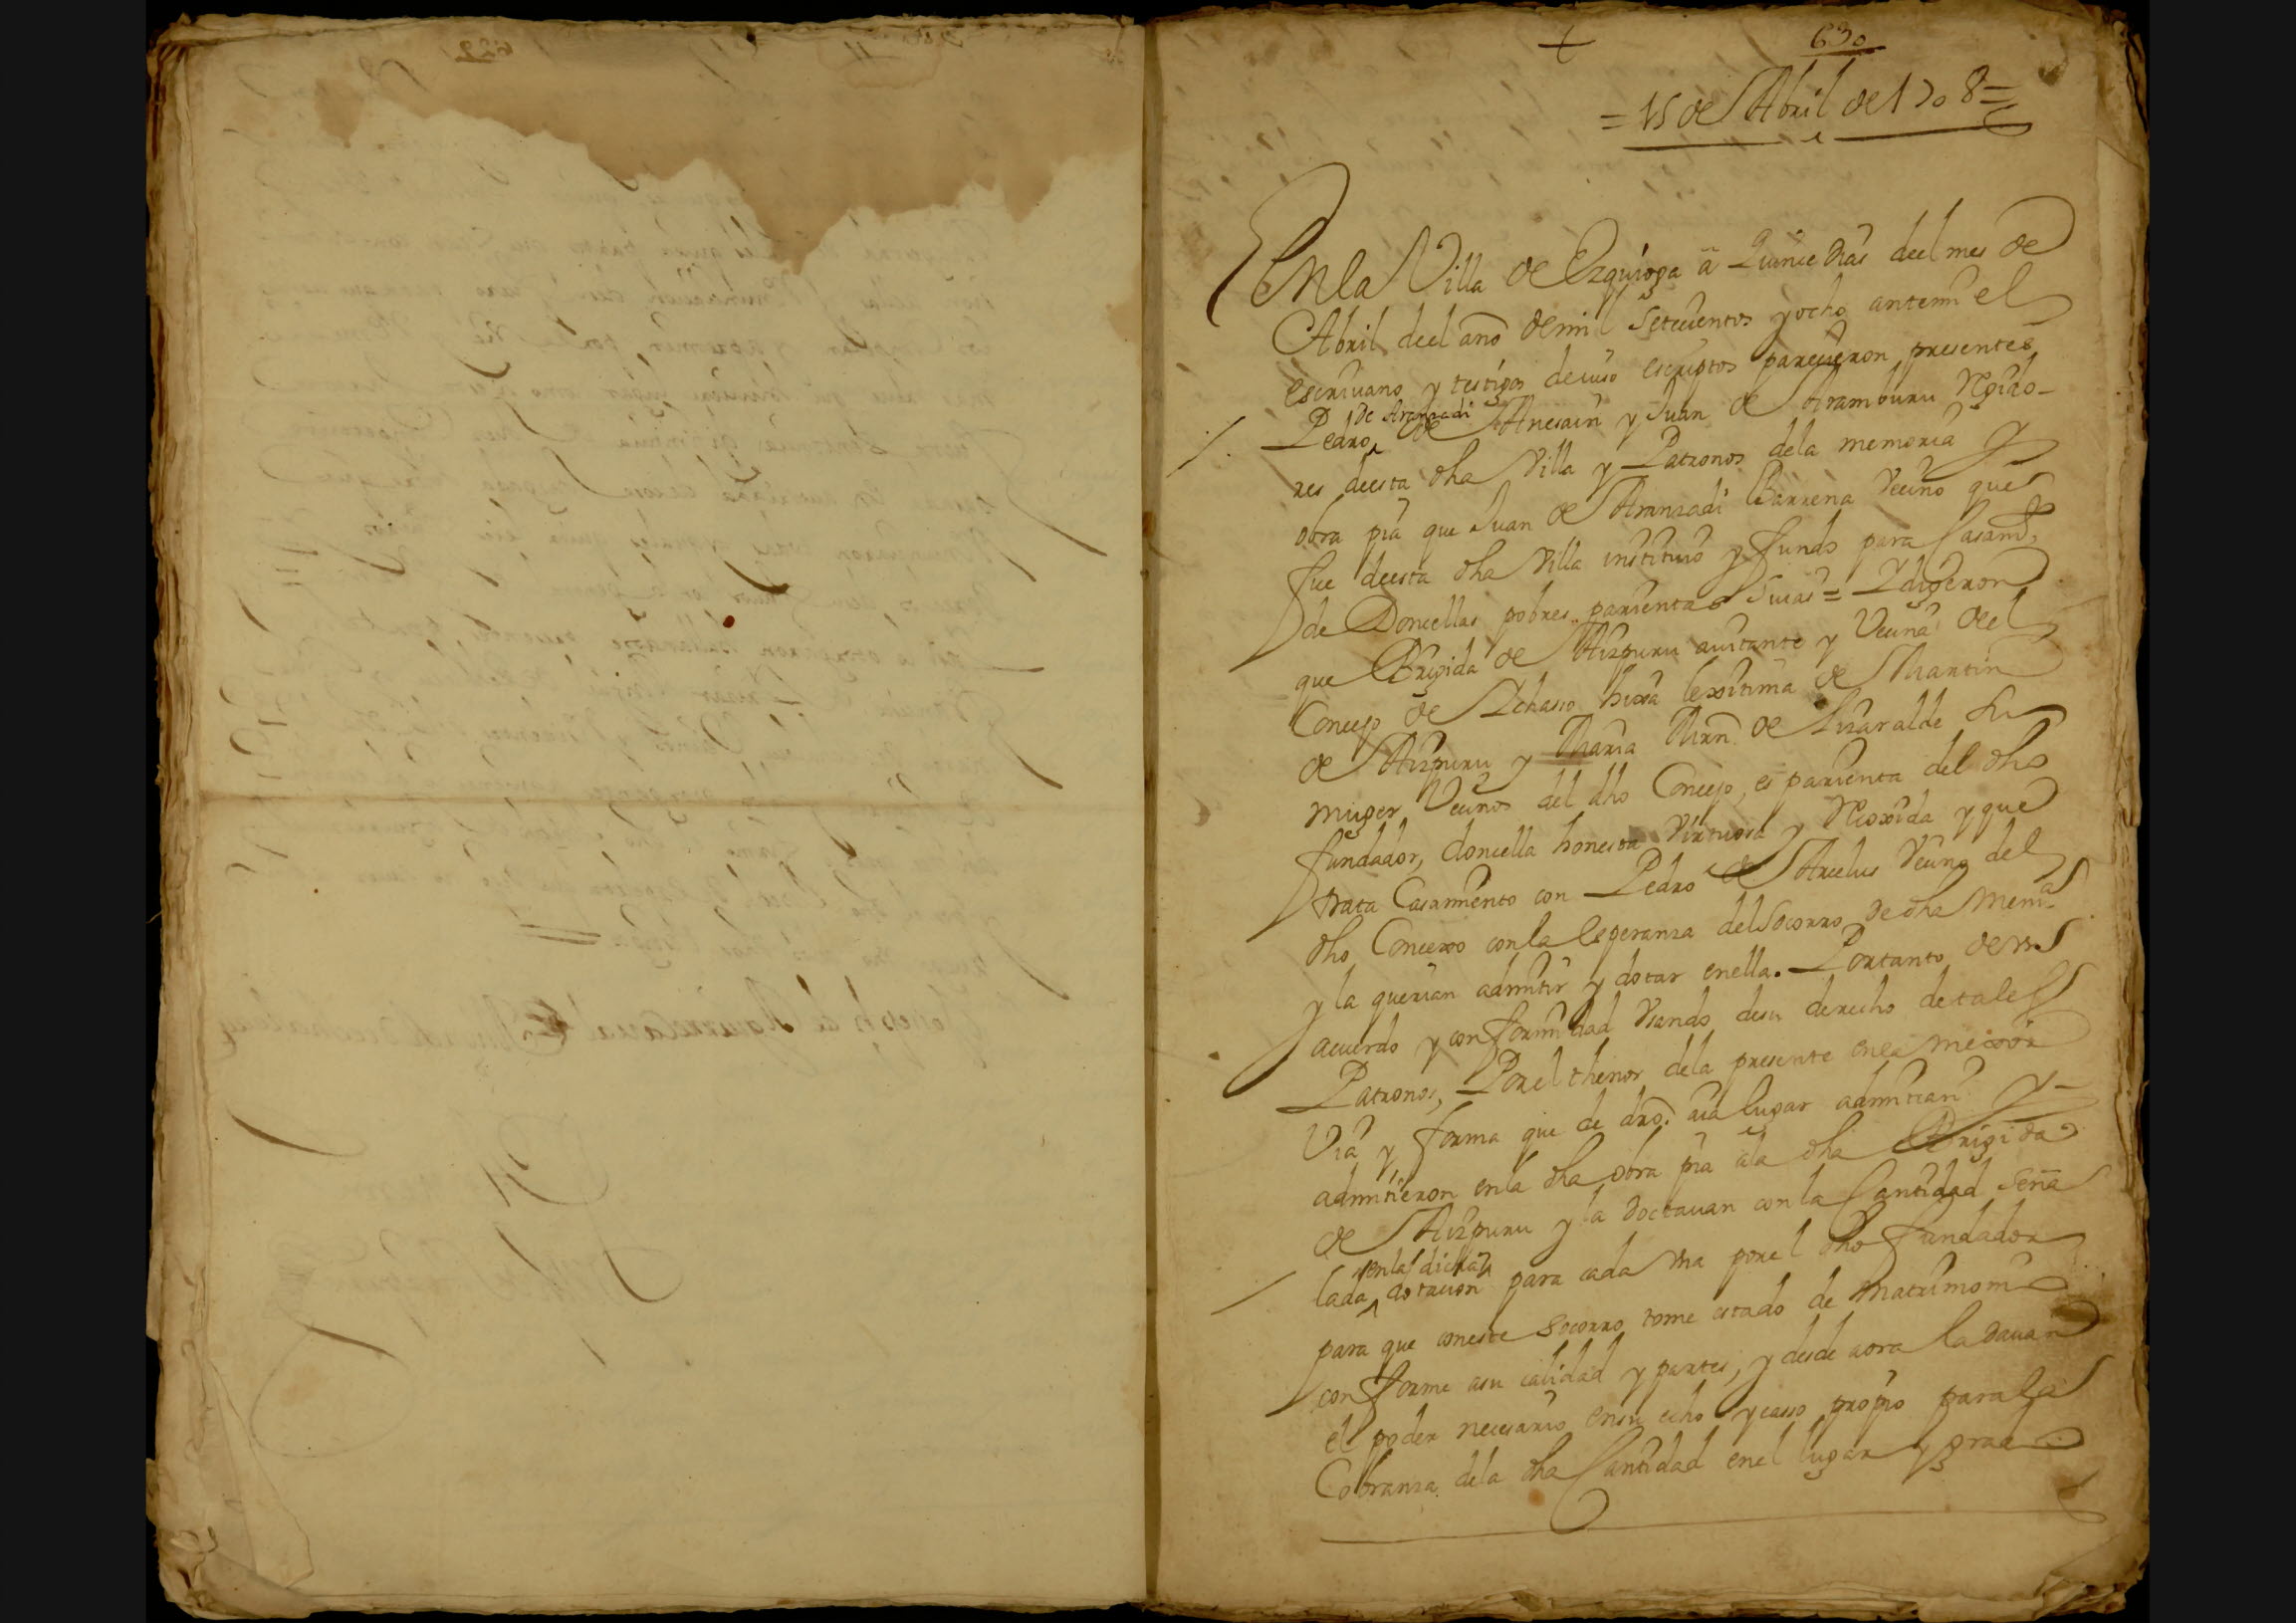 630
= 15 de Abril de 1708 =
En la Villa de Ezquioga a quince dias deel mes de
Abril deel año de mil Setecientos y ocho ante mi el
escriuano y testigos de iuso escriptos parecieron presentes
Pedro de Aranzadi Anesain y Juan de Aramburu Regido-
res deesta dha Villa y Patronos dela memoria y
obra pia que Juan de Aranzadi Barrena Vecino que
fue deesta dha Villa instituio y fundo para Casamto
de Doncellas pobres parientas Suias = Y digeron
que Brigida de Aizpuru auitante y Vecina del
Concejo de Ichasso hixa lexitima de Martin
de Aizpuru y Maria Mrn de Lizaralde su
muger Vecinos del dho Concejo, es parienta del dho
fundador, doncella honesta Virtuosa y Recoxida y que
trata Casamiento con Pedro de Arcelus Vecino del
dho Concexo con la esperanza del Socorro de dha Mema
y la querian admitir y dotar en ella. Por tanto de vn
acuerdo y conformidad Vsando de su derecho de tales
Patronos, Por el thenor dela presente en la mexor
Via y forma que de dro. aia lugar admitian y
admitieron en la dha obra pia ala dha Brigida
de Aizpuru y la doctauan con la Cantidad Seña
lada en la dicha dotacion para cada vna por el dho fundador
para que con este Socorro tome estado de Matrimonio
conforme a su calidad y partes, y desde aora la dauan
el poder necesario en su echo y casso propio para la
Cobranza dela dha Cantidad en el lugar y grado